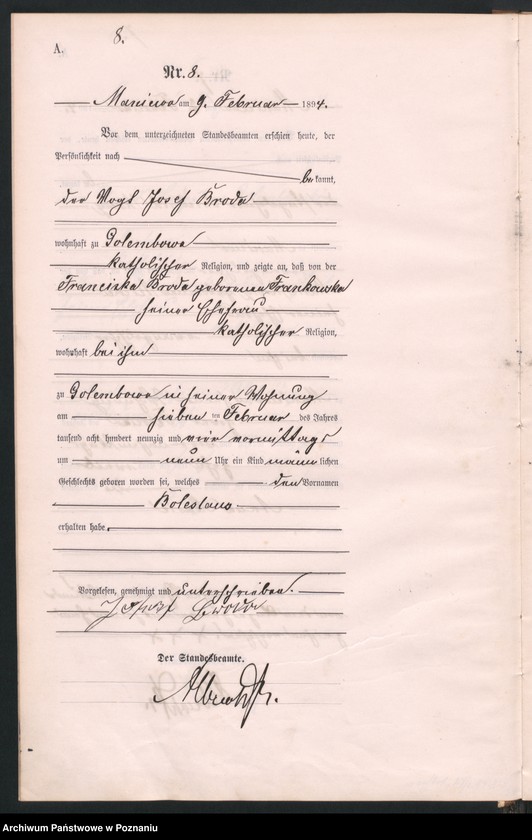 8.
A.
Nr. 8.
Maniewo am 9. Februar 1894.
Vor dem unterzeichneten Standesbeamten erschien heute, der
Persönlichkeit nach
bekannt,
der Vogt Josef Broda
wohnhaft zu Golembowo
katholischer Religion, und zeigte an, daß von der
Franciska Broda geborenen Frankowska
seiner Ehefrau
katholischer Religion,
wohnhaft bei ihm
zu Golembowo in seiner Wohnung
am sieben ten Februar des Jahres
tausend acht hundert neunzig und vier vormittags
um neun Uhr ein Kind männlichen
Geschlechts geboren worden sei, welches den Vornamen
Boleslaus
erhalten habe.
Vorgelesen, genehmigt und unterschrieben.
Josef Broda
Der Standesbeamte.
Archiwum Państwowe w Poznaniu